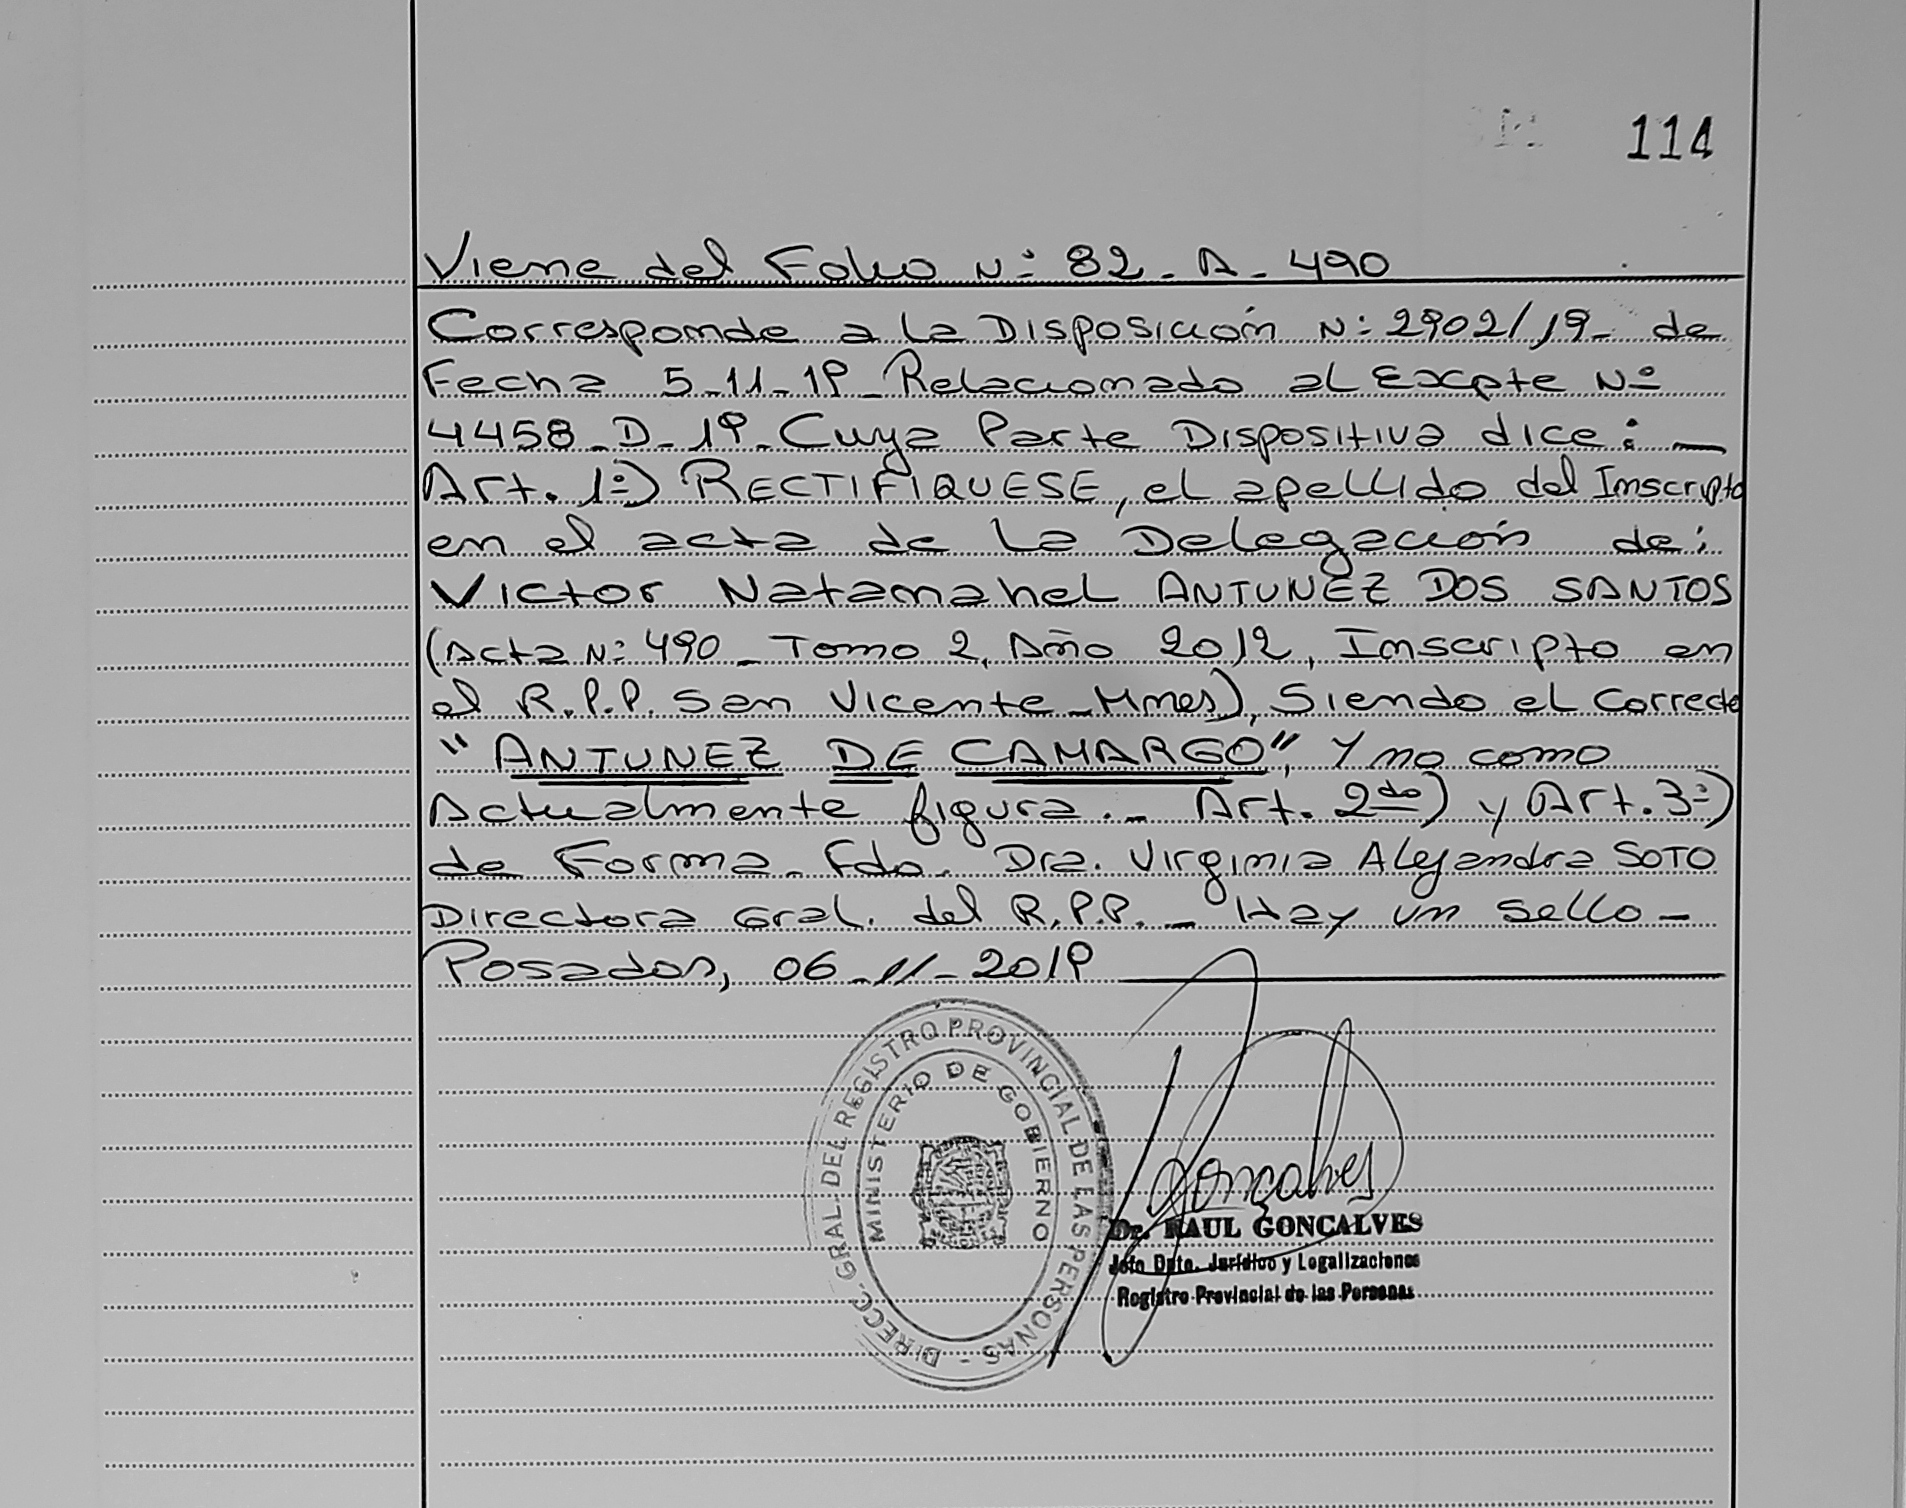 114
Viene del Folio Nº 82 - A - 490
Corresponde a la Disposición Nº 2902/19 - de
Fecha 5-11-19 - Relacionado al Expte Nº
4458 - D - 19 - Cuya Parte Dispositiva dice: -
Art. 1º) RECTIFIQUESE, el apellido del Inscripto
en el acta de la Delegación de:
Victor Natanahel ANTUNEZ DOS SANTOS
(Acta Nº 490 - Tomo 2, Año 2012, Inscripto en
el R.P.P. San Vicente - Mnes), Siendo el Correcto
"ANTUNEZ DE CAMARGO", Y no como
Actualmente figura. - Art. 2do) y Art. 3º)
de Forma. Fdo. Dra. Virginia Alejandra SOTO
Directora Gral. del R.P.P. - Hay un Sello -
Posadas, 06-11-2019
DIRECC. GRAL. DEL REGISTRO PROVINCIAL DE LAS PERSONAS -
MINISTERIO DE GOBIERNO
Gonçalves
Dr. RAUL GONCALVES
Jefe Dpto. Jurídico y Legalizaciones
Registro Provincial de las Personas